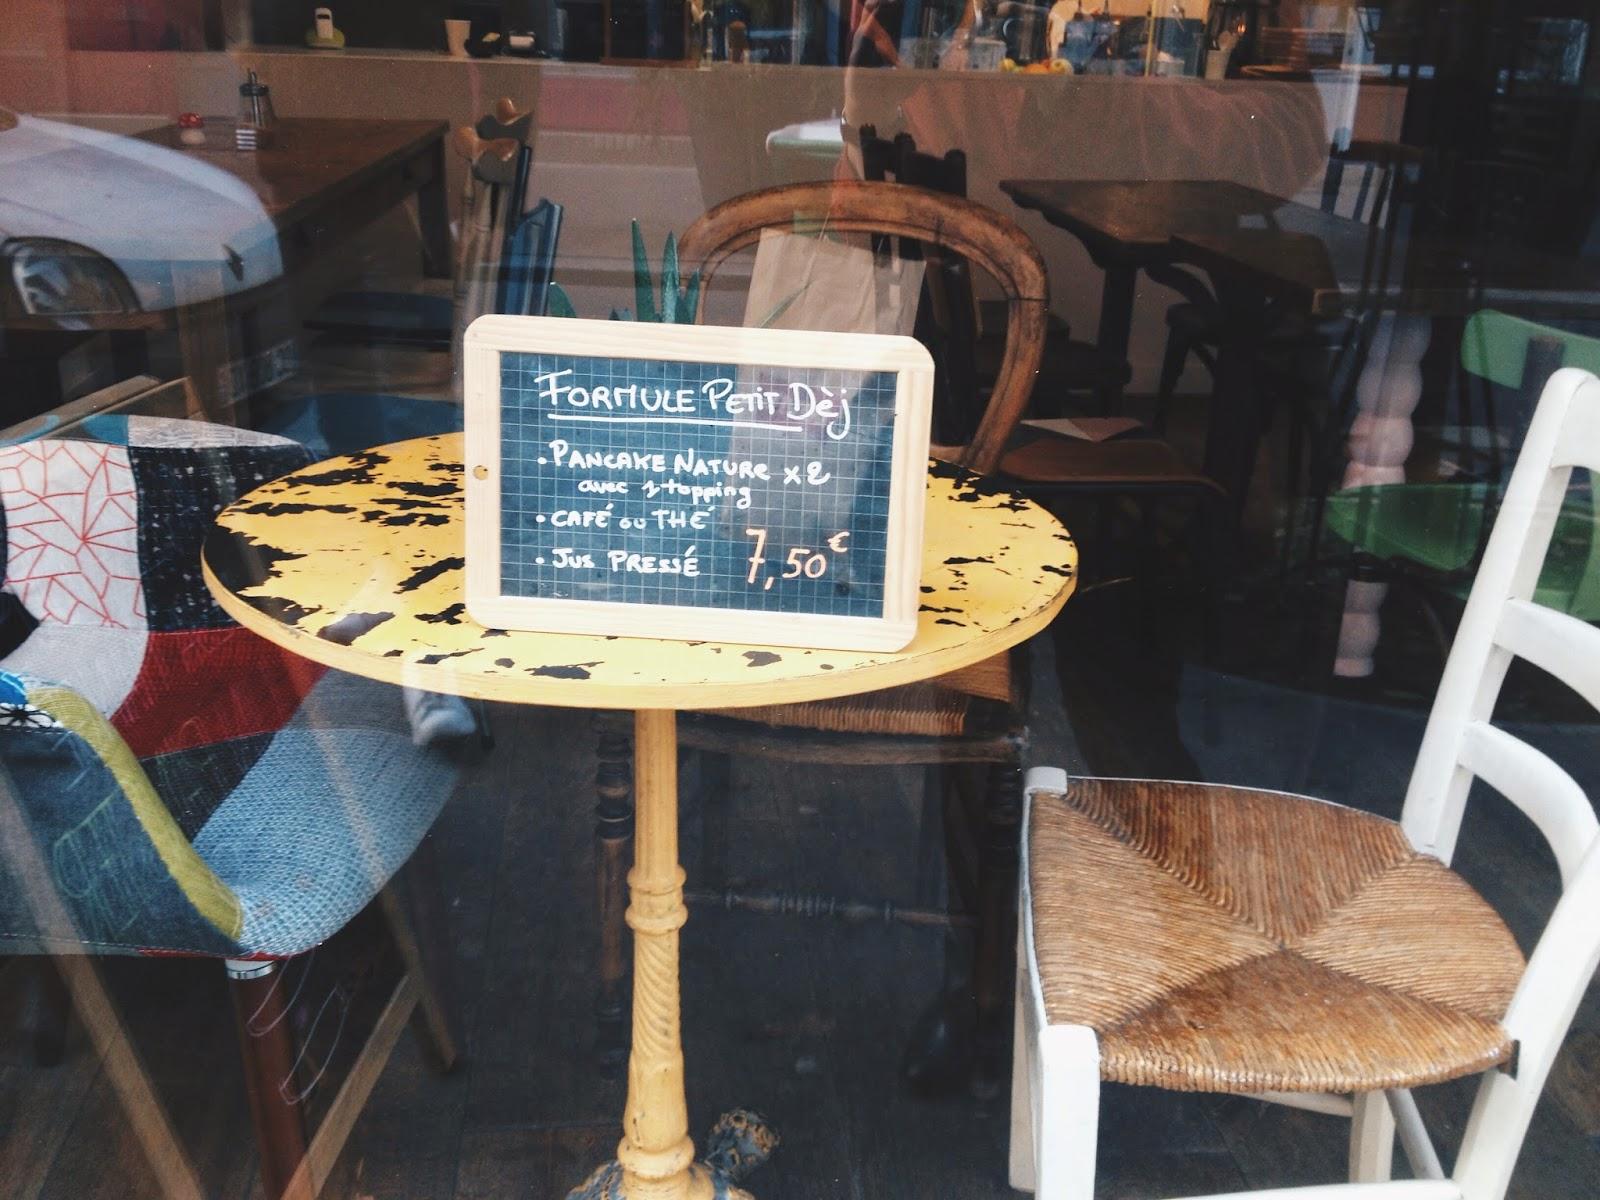 FORMULE PETIT DÈJ
• PANCAKE NATURE x2
avec 1 topping
• CAFÉ ou THÉ
• JUS PRESSÉ
7,50€